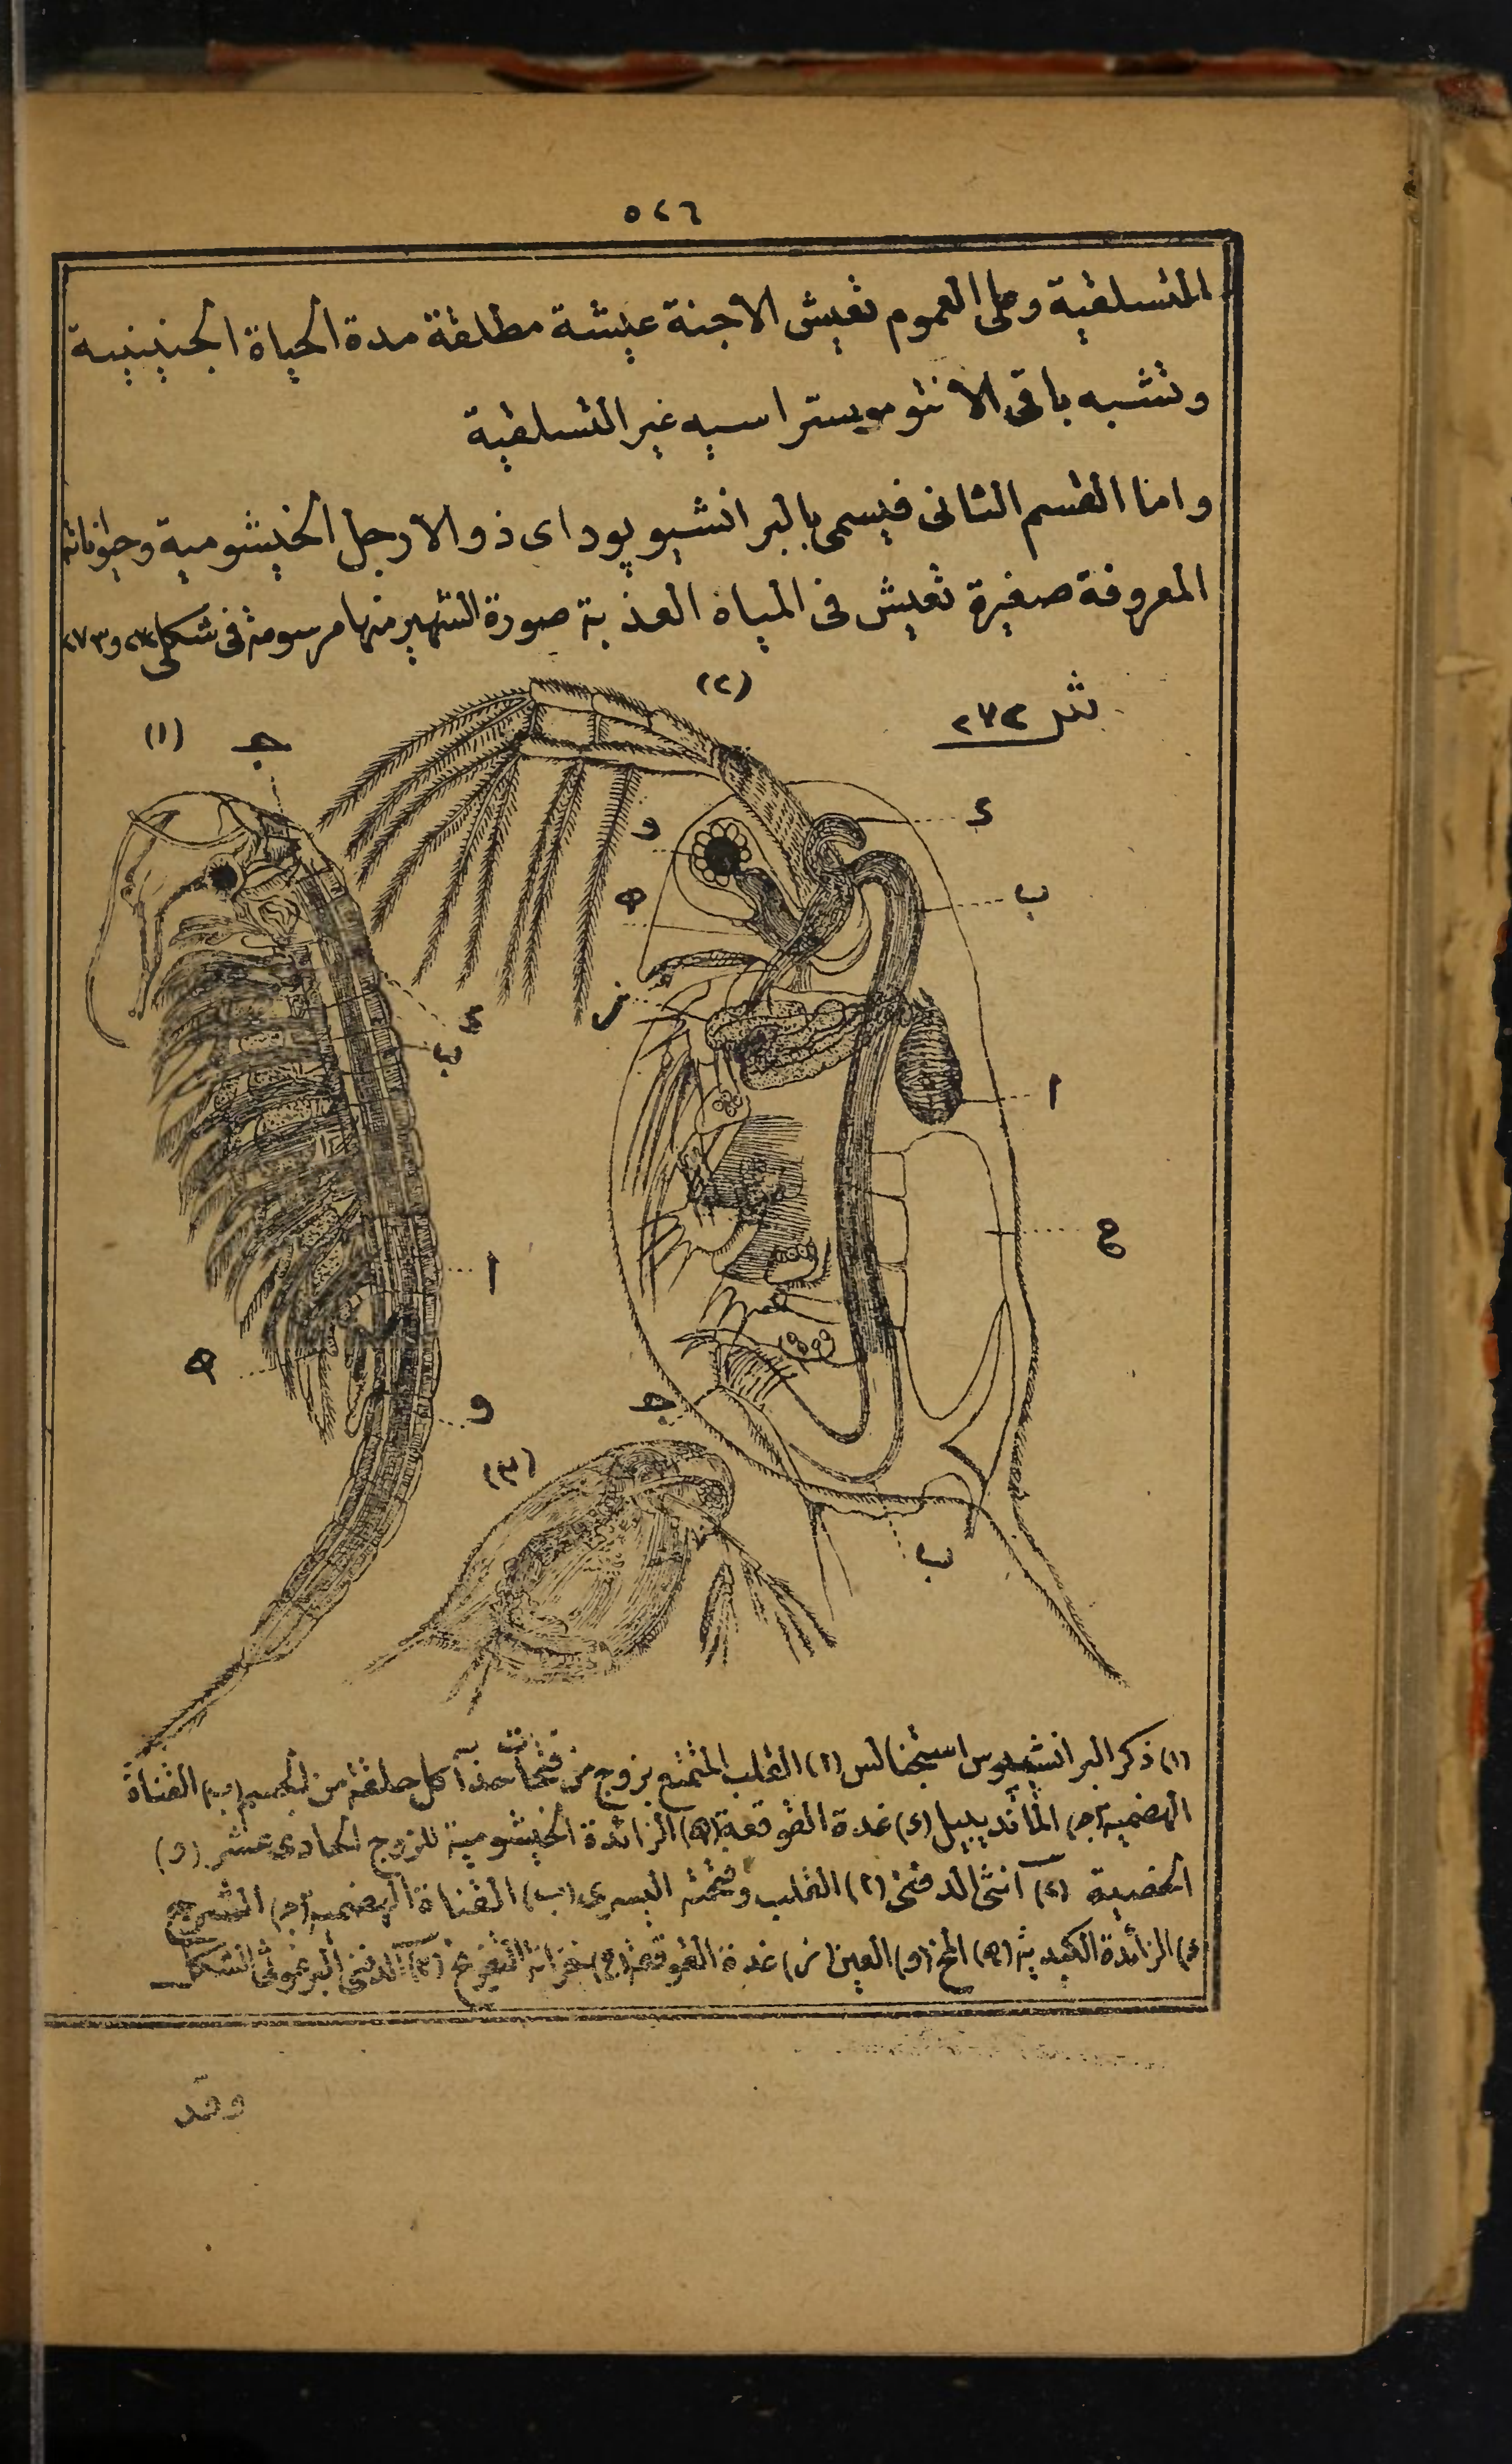 ٥٢٦
المتسلقية وعلى العموم تعيش الاجنة عيشة مطلقة مدة الحياة الجنينية
وتشبه باقى الانتوموستراسيه غير المتسلقية
واما القسم الثانى فيسمى بالبرانشيوپود اى ذو الارجل الخيشومية وحيواناته
المعروفة صغيرة تعيش فى المياه العذبة صورة الشهير منها مرسومة فى شكلى ٢٧٢ و ٢٧٣
شكل ٢٧٢
(١) جـ
(٢)
و
ه
ز
د
ب
ا
ح
جـ
ب
د
ب
ا
ه
و
(٣)
(١) ذكر البرانشيبوس استجنالس (ا) القلب المتمتع بزوج من فتحات حذآ كل حلقة من الجسم (ب) القناة
الهضمية (جـ) الماندیبیل (د) غدة القوقعة (ه) الزائدة الخيشومية للزوج الحادى عشر (و)
الخصية (٢) آنثى الدفنى (ا) القلب وفتحته اليسرى (ب) القناة الهضمية (جـ) الشرج
(د) الزائدة الكبدية (ه) المخ (و) العين (ز) غدة القوقعة (ح) خزانة التفريخ (٣) الدفنى البرغوثى الشكل
وقد